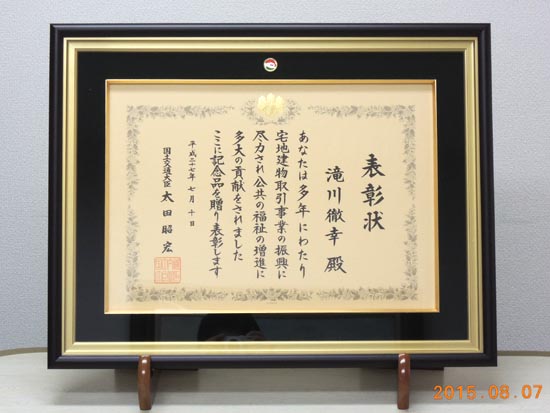 表彰状
滝川徹幸 殿
あなたは多年にわたり
宅地建物取引事業の振興に
尽力され公共の福祉の増進に
多大の貢献をされました
ここに記念品を贈り表彰します
平成二十七年七月十日
国土交通大臣 太田昭宏
2015.08.07